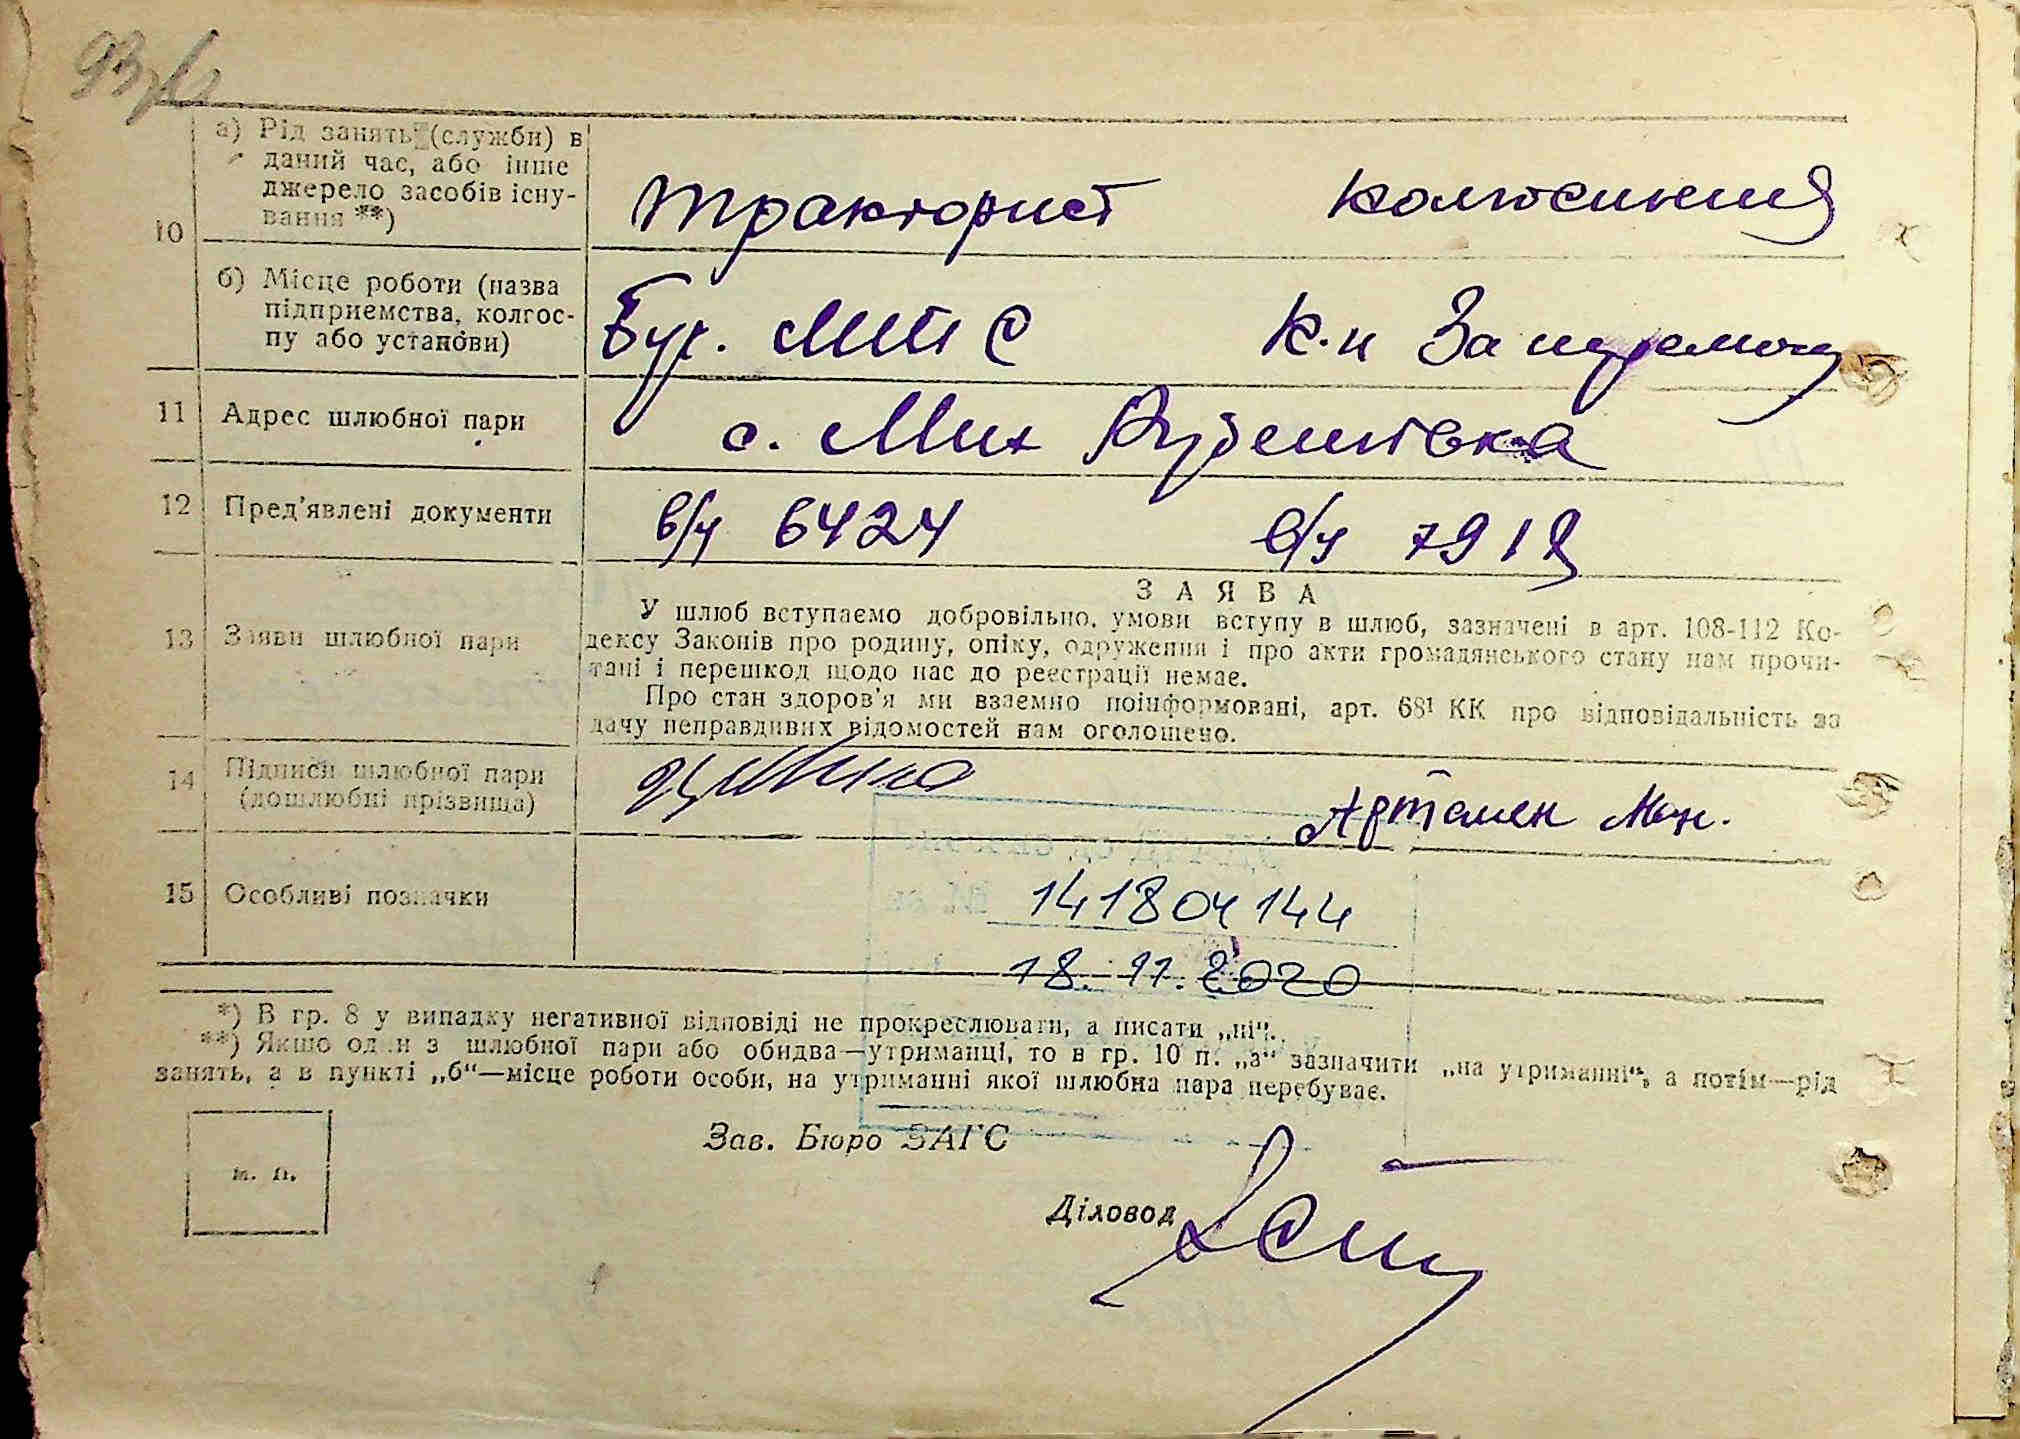 93
10
а) Рід занять (служби) в
даний час, або інше
джерело засобів існу-
вання **)
тракторист
колгоспниця
б) Місце роботи (назва
підприємства, колгос-
пу або установи)
Буг. МТС
К-п За перемогу
11 Адрес шлюбної пари
с. Мих
12 Пред'явлені документи
в/ч 6424
в/ч 7918
13 Заяви шлюбної пари
ЗАЯВА
У шлюб вступаємо добровільно, умови вступу в шлюб, зазначені в арт. 108-112 Ко-
дексу Законів про родину, опіку, одруження і про акти громадянського стану нам прочи-
тані і перешкод щодо нас до реєстрації немає.
Про стан здоров'я ми взаємно поінформовані, арт. 68¹ КК про відповідальність за
дачу неправдивих відомостей нам оголошено.
14 Підписи шлюбної пари
(дошлюбні прізвища)
15 Особливі позначки
141804144
18.11.2020
*) В гр. 8 у випадку негативної відповіді не прокреслювати, а писати „ні“.
**) Якщо один з шлюбної пари або обидва—утриманці, то в гр. 10 п. „а“ зазначити „на утриманні“, а потім—рід
занять, а в пункті „б“—місце роботи особи, на утриманні якої шлюбна пара перебуває.
м. п.
Зав. Бюро ЗАГС
Діловод